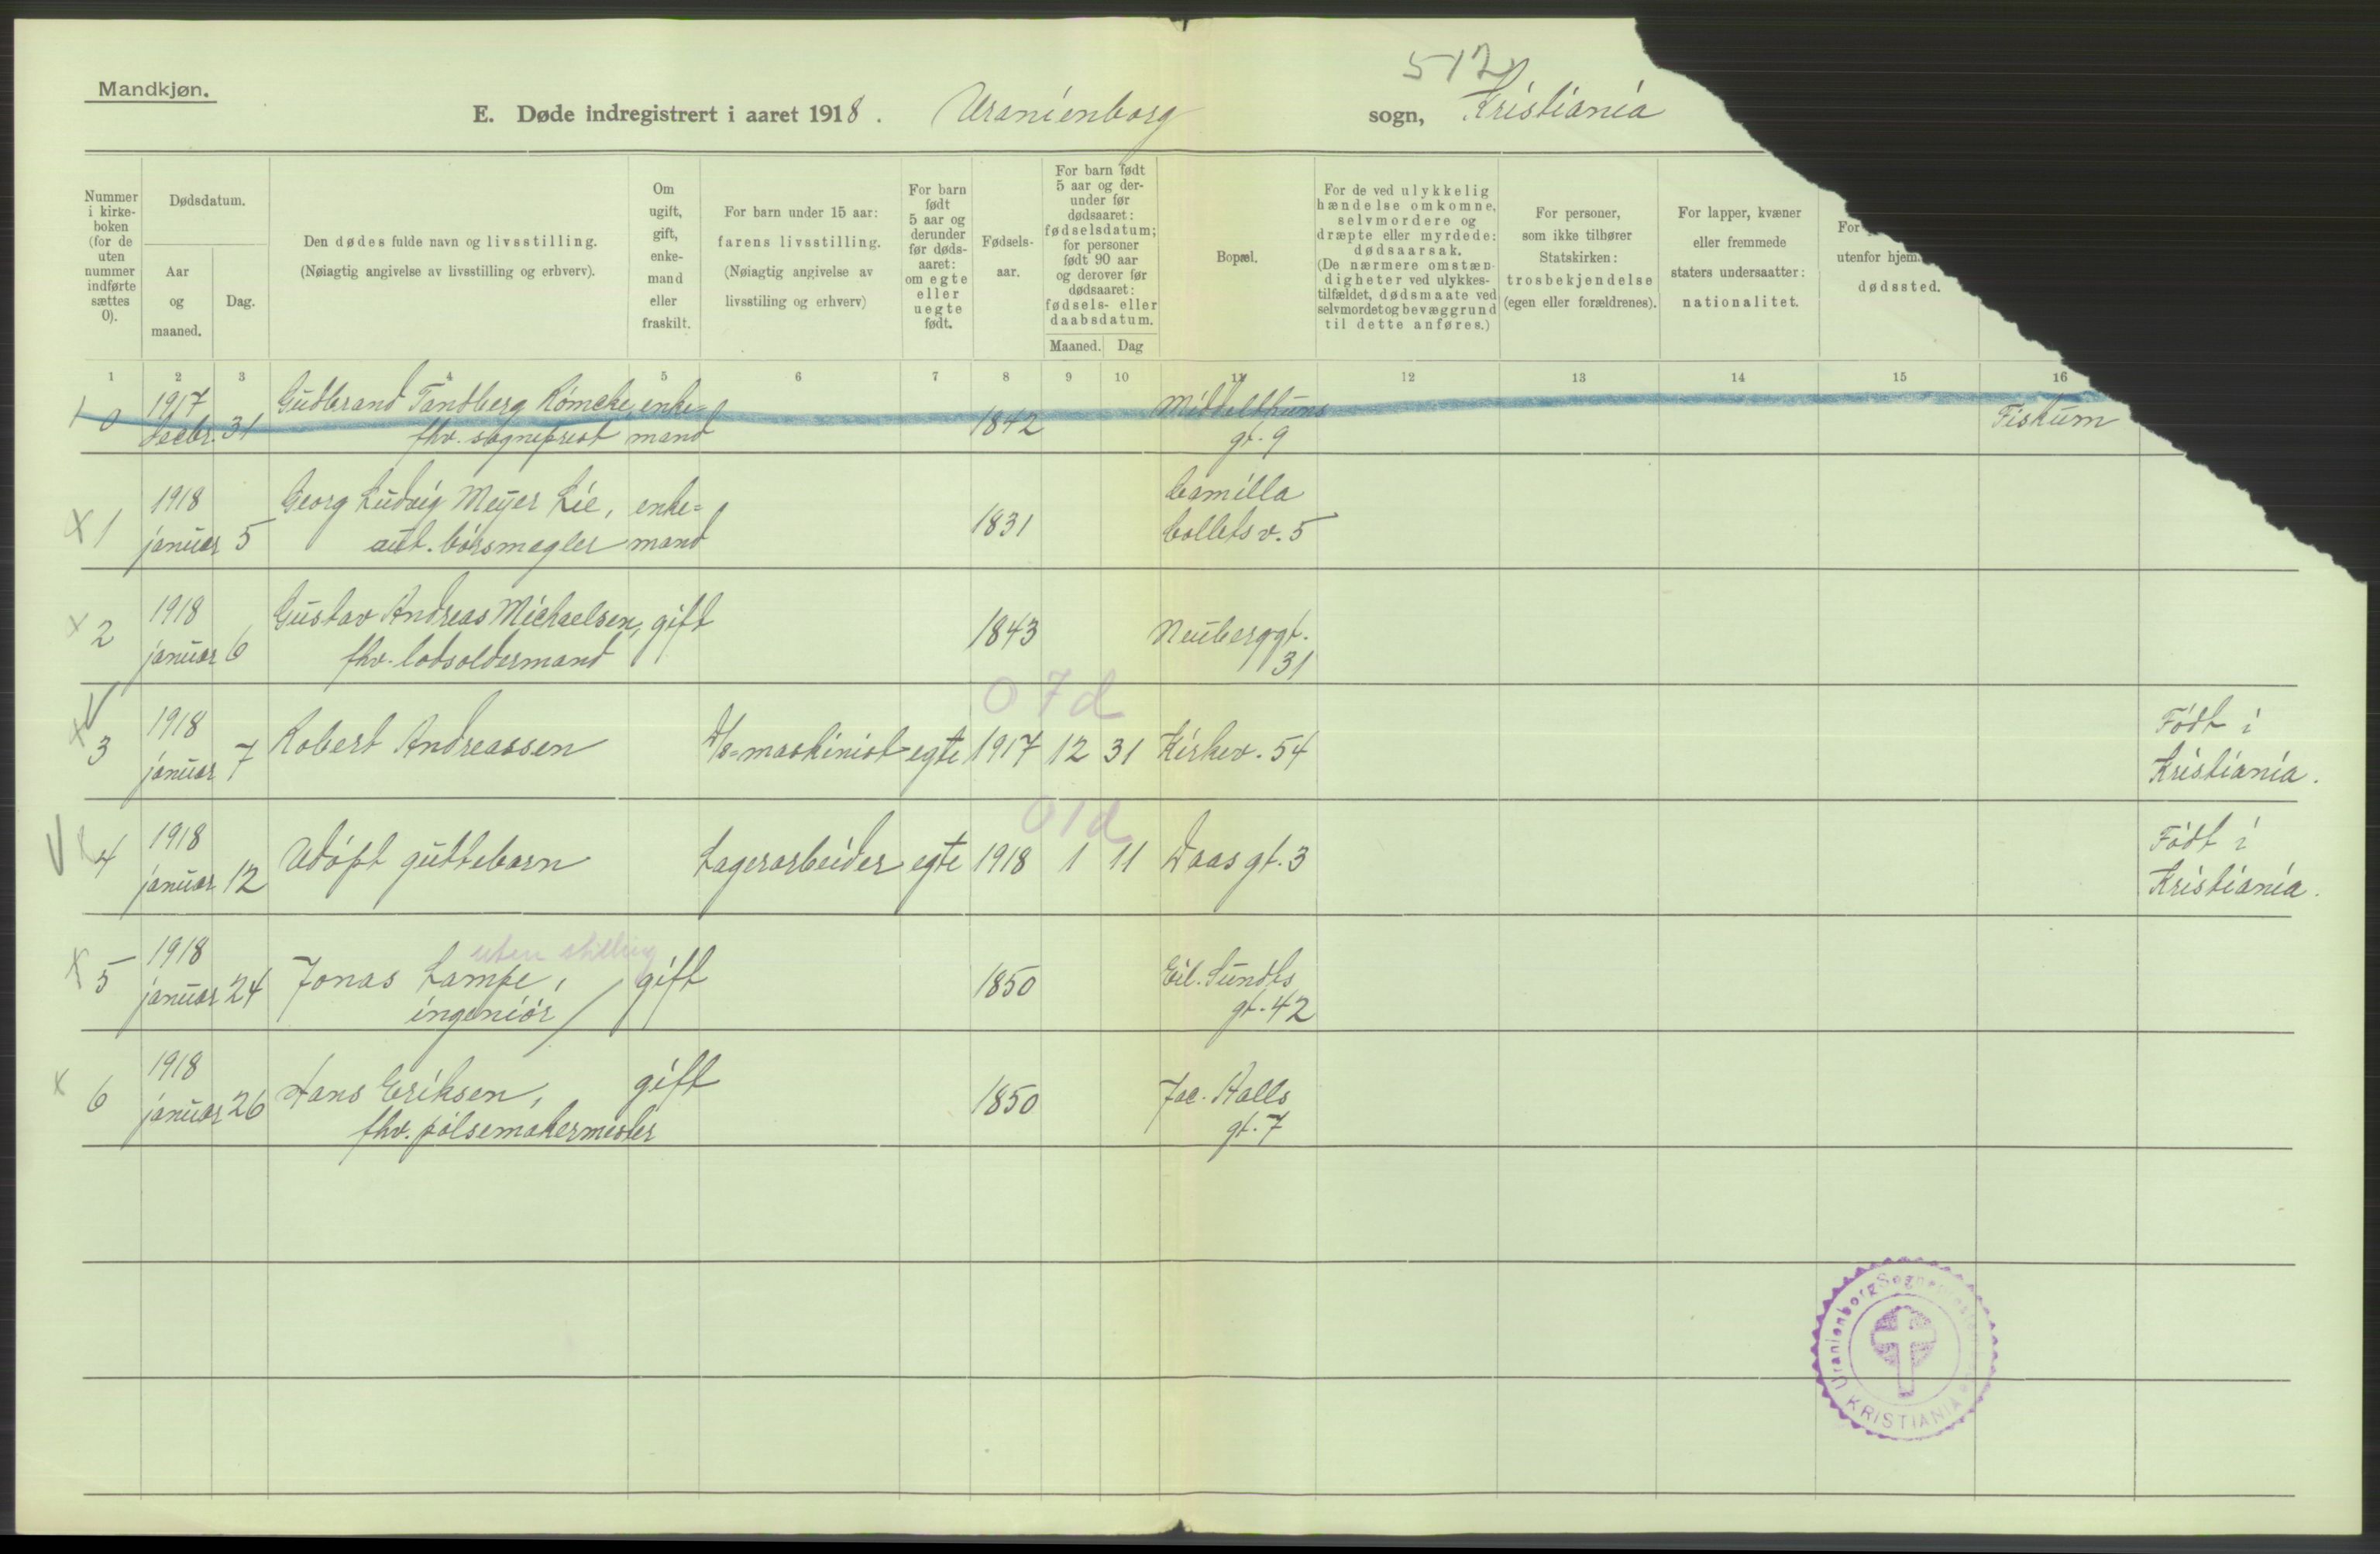 512
Mandkjøn.
E. Døde indregistrert i aaret 1918. Uranienborg sogn, Kristiania
Nummer i kirke- boken (for de uten nummer indførte sættes 0).
Dødsdatum.
Aar og maaned.
Dag.
Den dødes fulde navn og livsstilling.
(Nøiagtig angivelse av livsstilling og erhverv).
Om ugift, gift, enke- mand eller fraskilt.
For barn under 15 aar:
farens livsstilling.
(Nøiagtig angivelse av
livsstiling og erhverv)
For barn født 5 aar og derunder før døds- aaret: om egte eller uegte født.
Fødsels- aar.
For barn født 5 aar og der- under før dødsaaret: fødselsdatum; for personer født 90 aar og derover før dødsaaret: fødsels- eller daabsdatum.
Maaned. Dag
Bopæl.
For de ved ulykkelig hændelse omkomne, selvmordere og dræpte eller myrdede: dødsaarsak.
(De nærmere omstæn- digheter ved ulykkes- tilfældet, dødsmaate ved selvmordet og bevæggrund til dette anføres.)
For personer, som ikke tilhører Statskirken: trosbekjendelse (egen eller forældrenes).
For lapper, kvæner eller fremmede staters undersaatter: nationalitet.
For
utenfor hjem.
dødssted.
1 2 3 4 5 6 7 8 9 10 11 12 13 14 15 16
1917 Gudbrand Tandberg Rømcke, enke= Middelthuns
0 decbr. 31 fhv. sogneprest mand 1842 gt. 9 Fiskum
1918 Georg Ludvig Meyer Lie, enke= Camilla
x 1 januar 5 aut. börsmegler mand 1831 Collets v. 5
1918 Gustav Andreas Michaelsen, gift 1843 Neuberggt.
x 2 januar 6 fhv. lodsoldermand 31
0 7 d
1918 Født i
x 3 januar 7 Robert Andreassen D/s=maskinist egte 1917 12 31 Kirkev. 54 Kristiania.
0 1 d
1918 Født i
4 januar 12 Udöpt guttebarn Lagerarbeider egte 1918 1 11 Daas gt. 3 Kristiania.
uten stilling
1918 Eil. Sundts
x 5 januar 24 Jonas Lampe, gift 1850 gt. 42
ingeniör
1918 Hans Eriksen, gift 1850 Jac. Halls
x 6 januar 26 fhv. pölsemakermester gt. 7
Uranienborg Sogneprest
KRISTIANIA